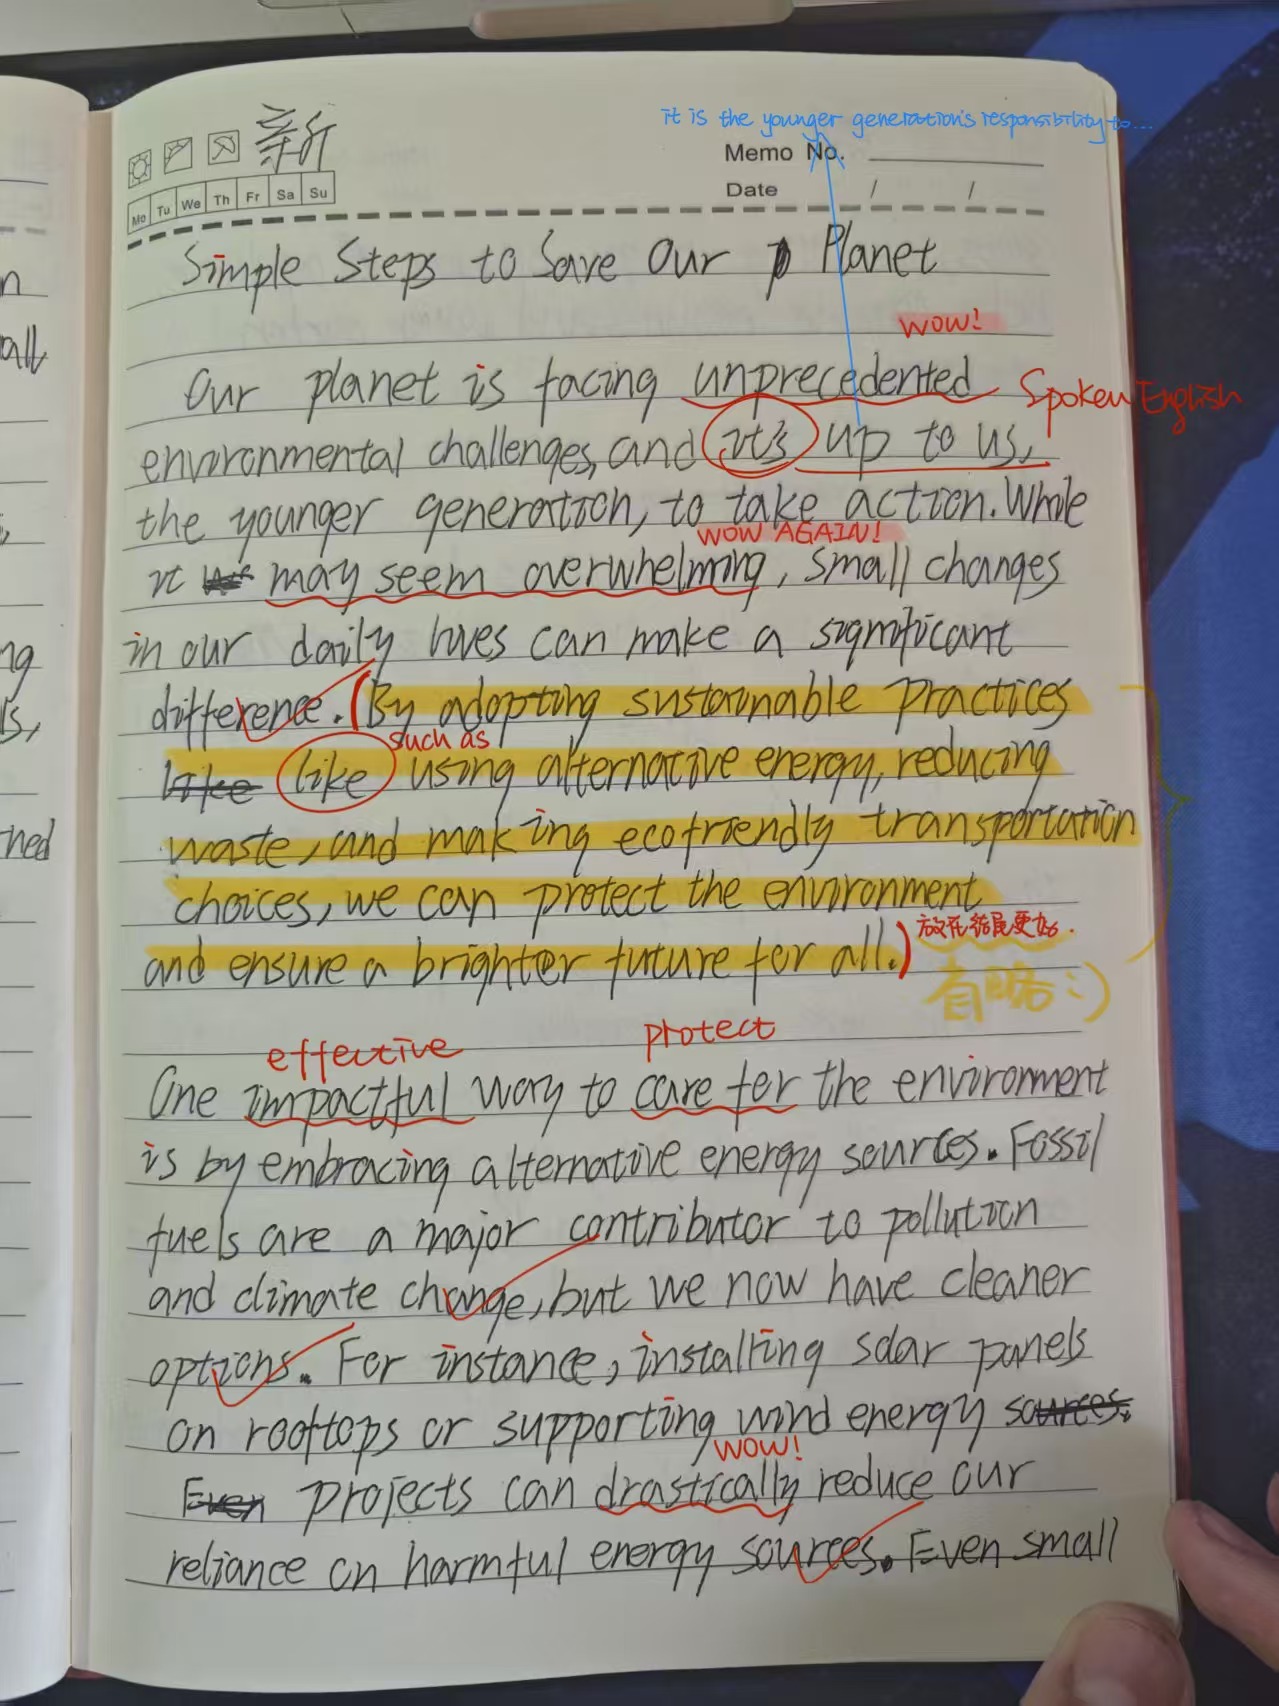 it is the younger generation's responsibility to...
新
Memo No.
Mo Tu We Th Fr Sa Su
Date / /
Simple Steps to Save Our Planet
WOW!
Our planet is facing unprecedented
Spoken English
environmental challenges, and it's up to us,
the younger generation, to take action. While
WOW AGAIN!
it may seem overwhelming, small changes
in our daily lives can make a significant
difference. (By adopting sustainable practices
such as
like like using alternative energy, reducing
waste, and making ecofriendly transportation
choices, we can protect the environment
and ensure a brighter future for all.) 放在结尾更好.
:)
effective protect
One impactful way to care for the environment
is by embracing alternative energy sources. Fossil
fuels are a major contributor to pollution
and climate change, but we now have cleaner
options. For instance, installing solar panels
on rooftops or supporting wind energy sources.
Even projects can drastically reduce our
WOW!
reliance on harmful energy sources. Even small
n
all
ng
s,
ned